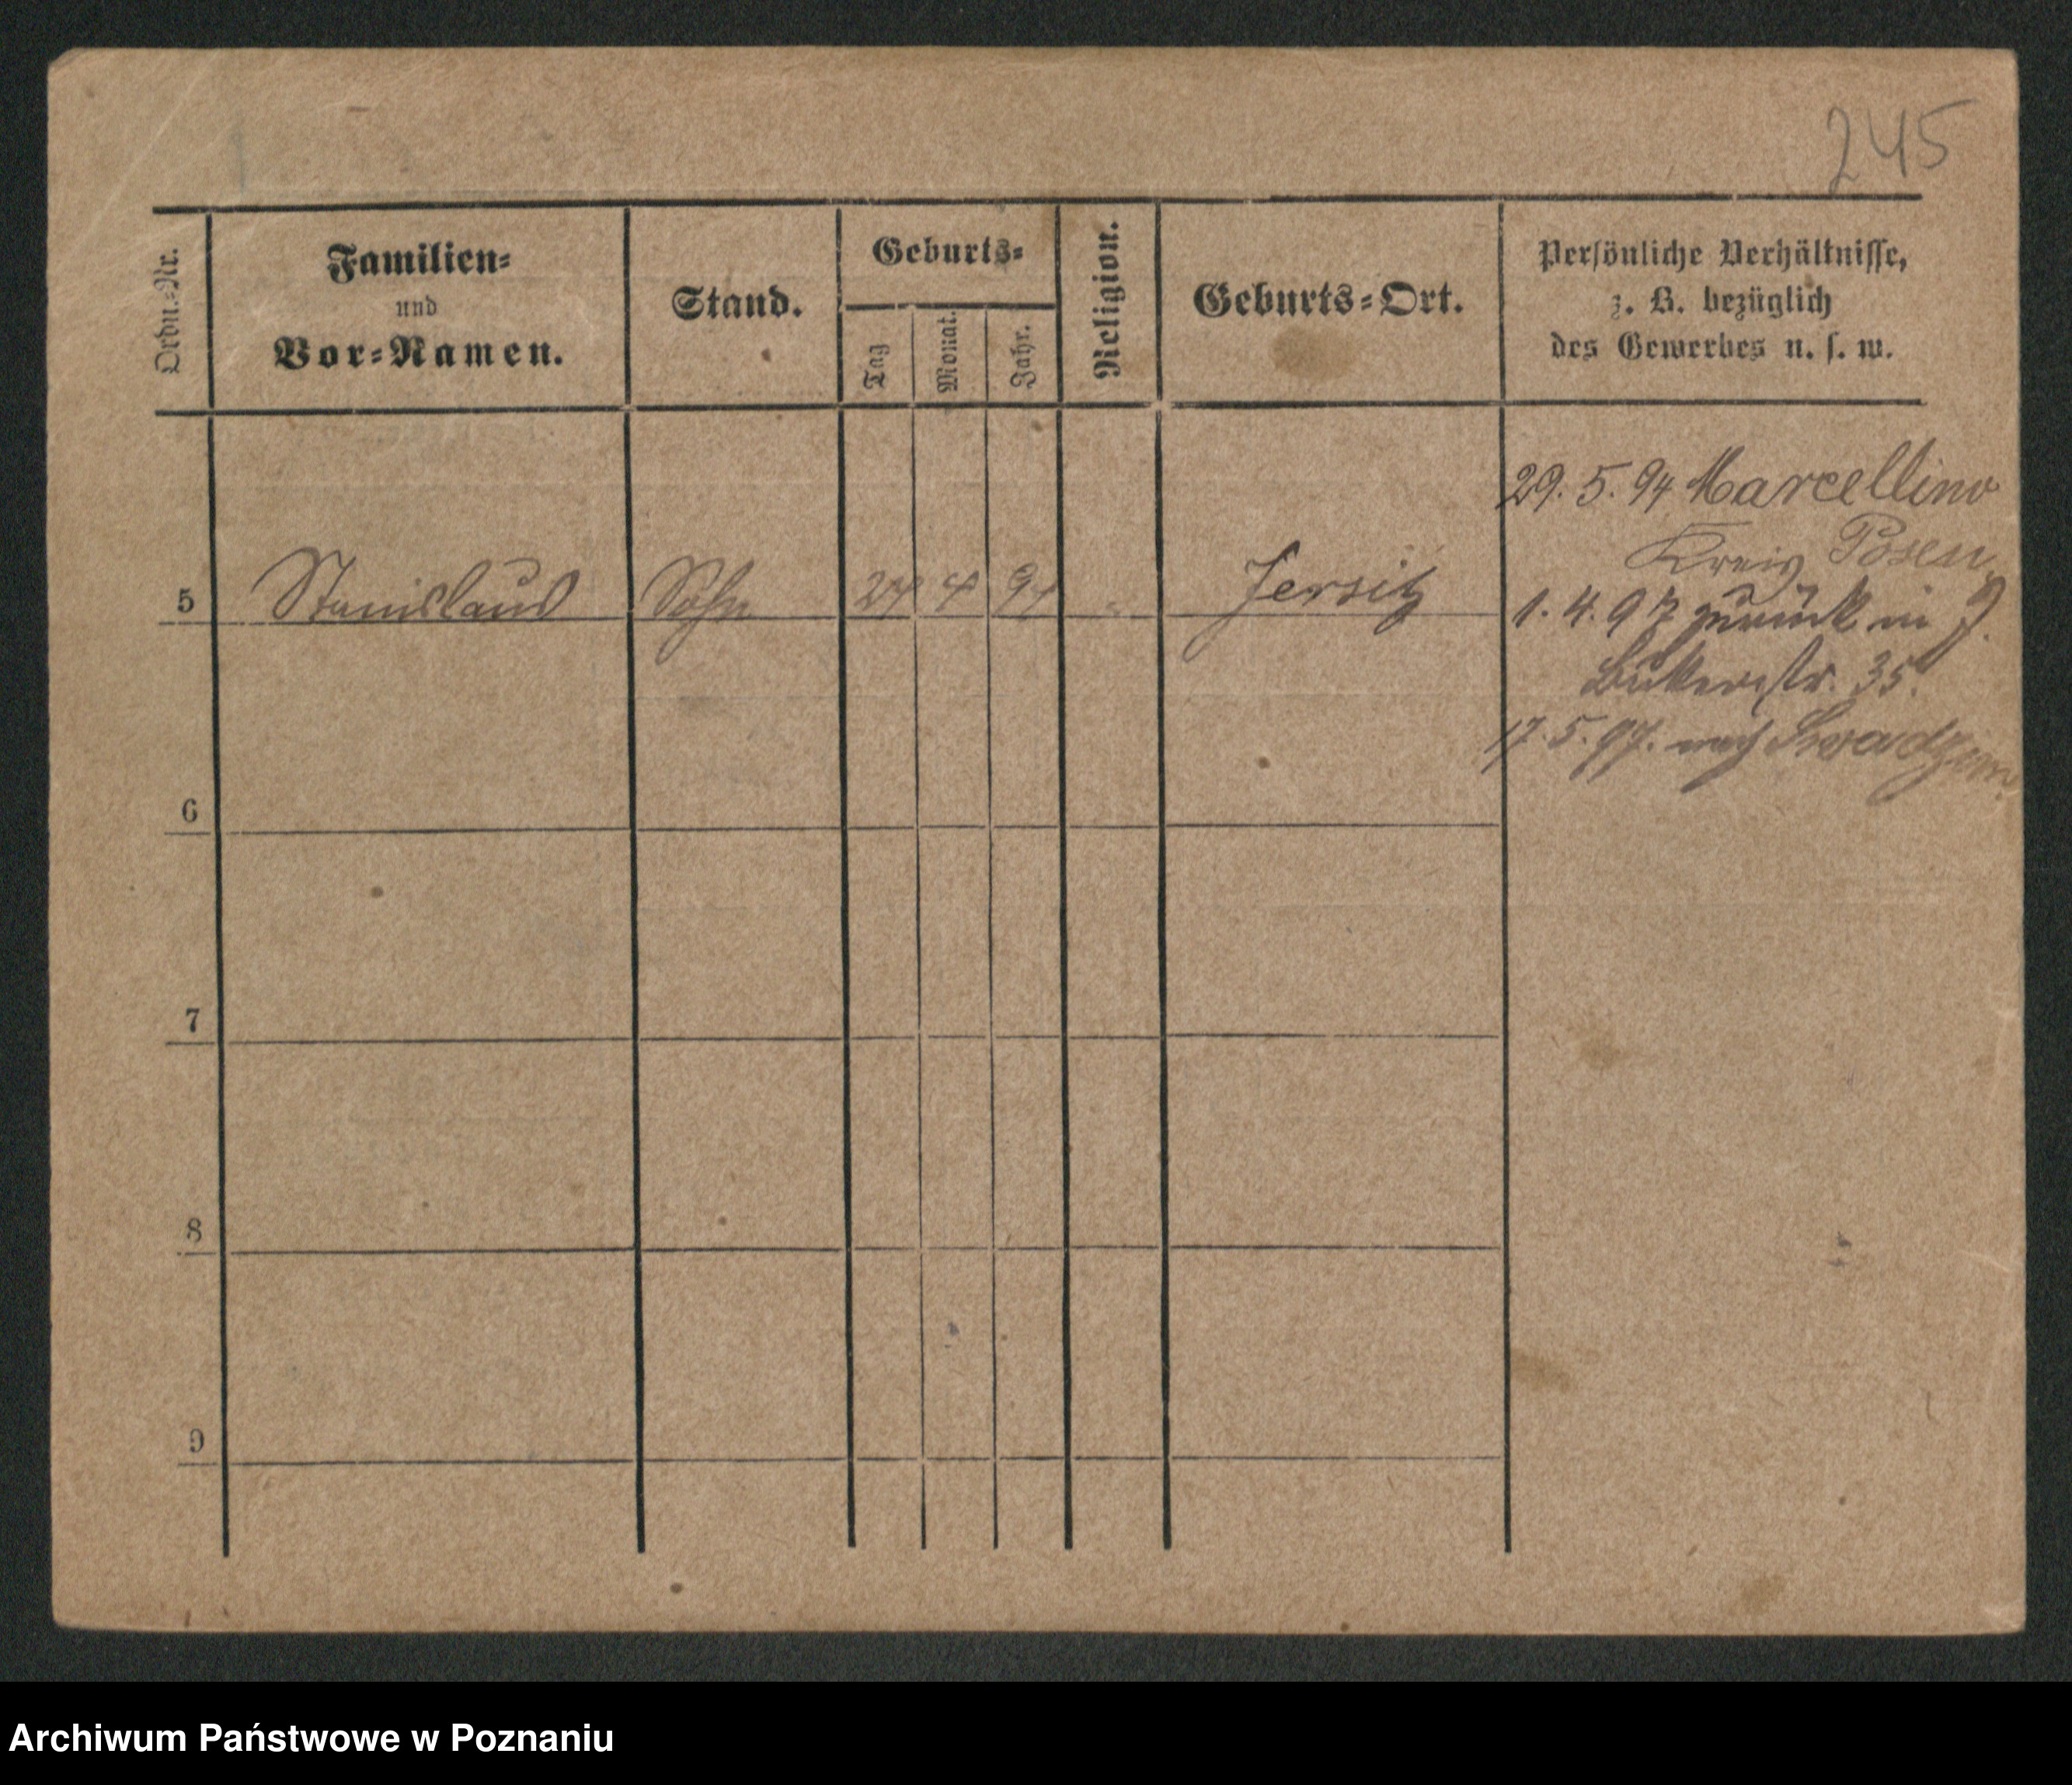 245
Ordn.-Nr.
Familien-
und
Vor-Namen.
Stand.
Geburts-
Tag
Monat.
Jahr.
Religion.
Geburts-Ort.
Persönliche Verhältnisse,
z. B. bezüglich
des Gewerbes u. s. w.
29. 5. 94 Marcellino
Kreis Posen
5 Stanislaus Sohn 24 4 94 " Jersitz
1. 4. 97 zurück in J.
Bukerstr. 35.
17. 5. 97. nach
6
7
8
9
Archiwum Państwowe w Poznaniu